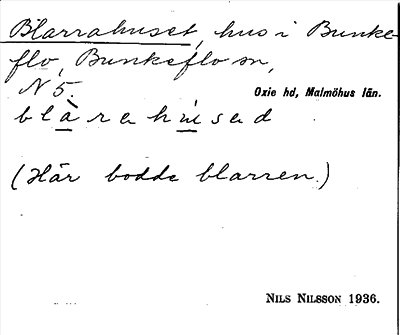 Blarrahuset, hus i Bunke-
flo, Bunkeflo sn,
N 5. Oxie hd, Malmöhus län.
blàrahúsad
(Här bodde blarren.)
NILS NILSSON 1936.